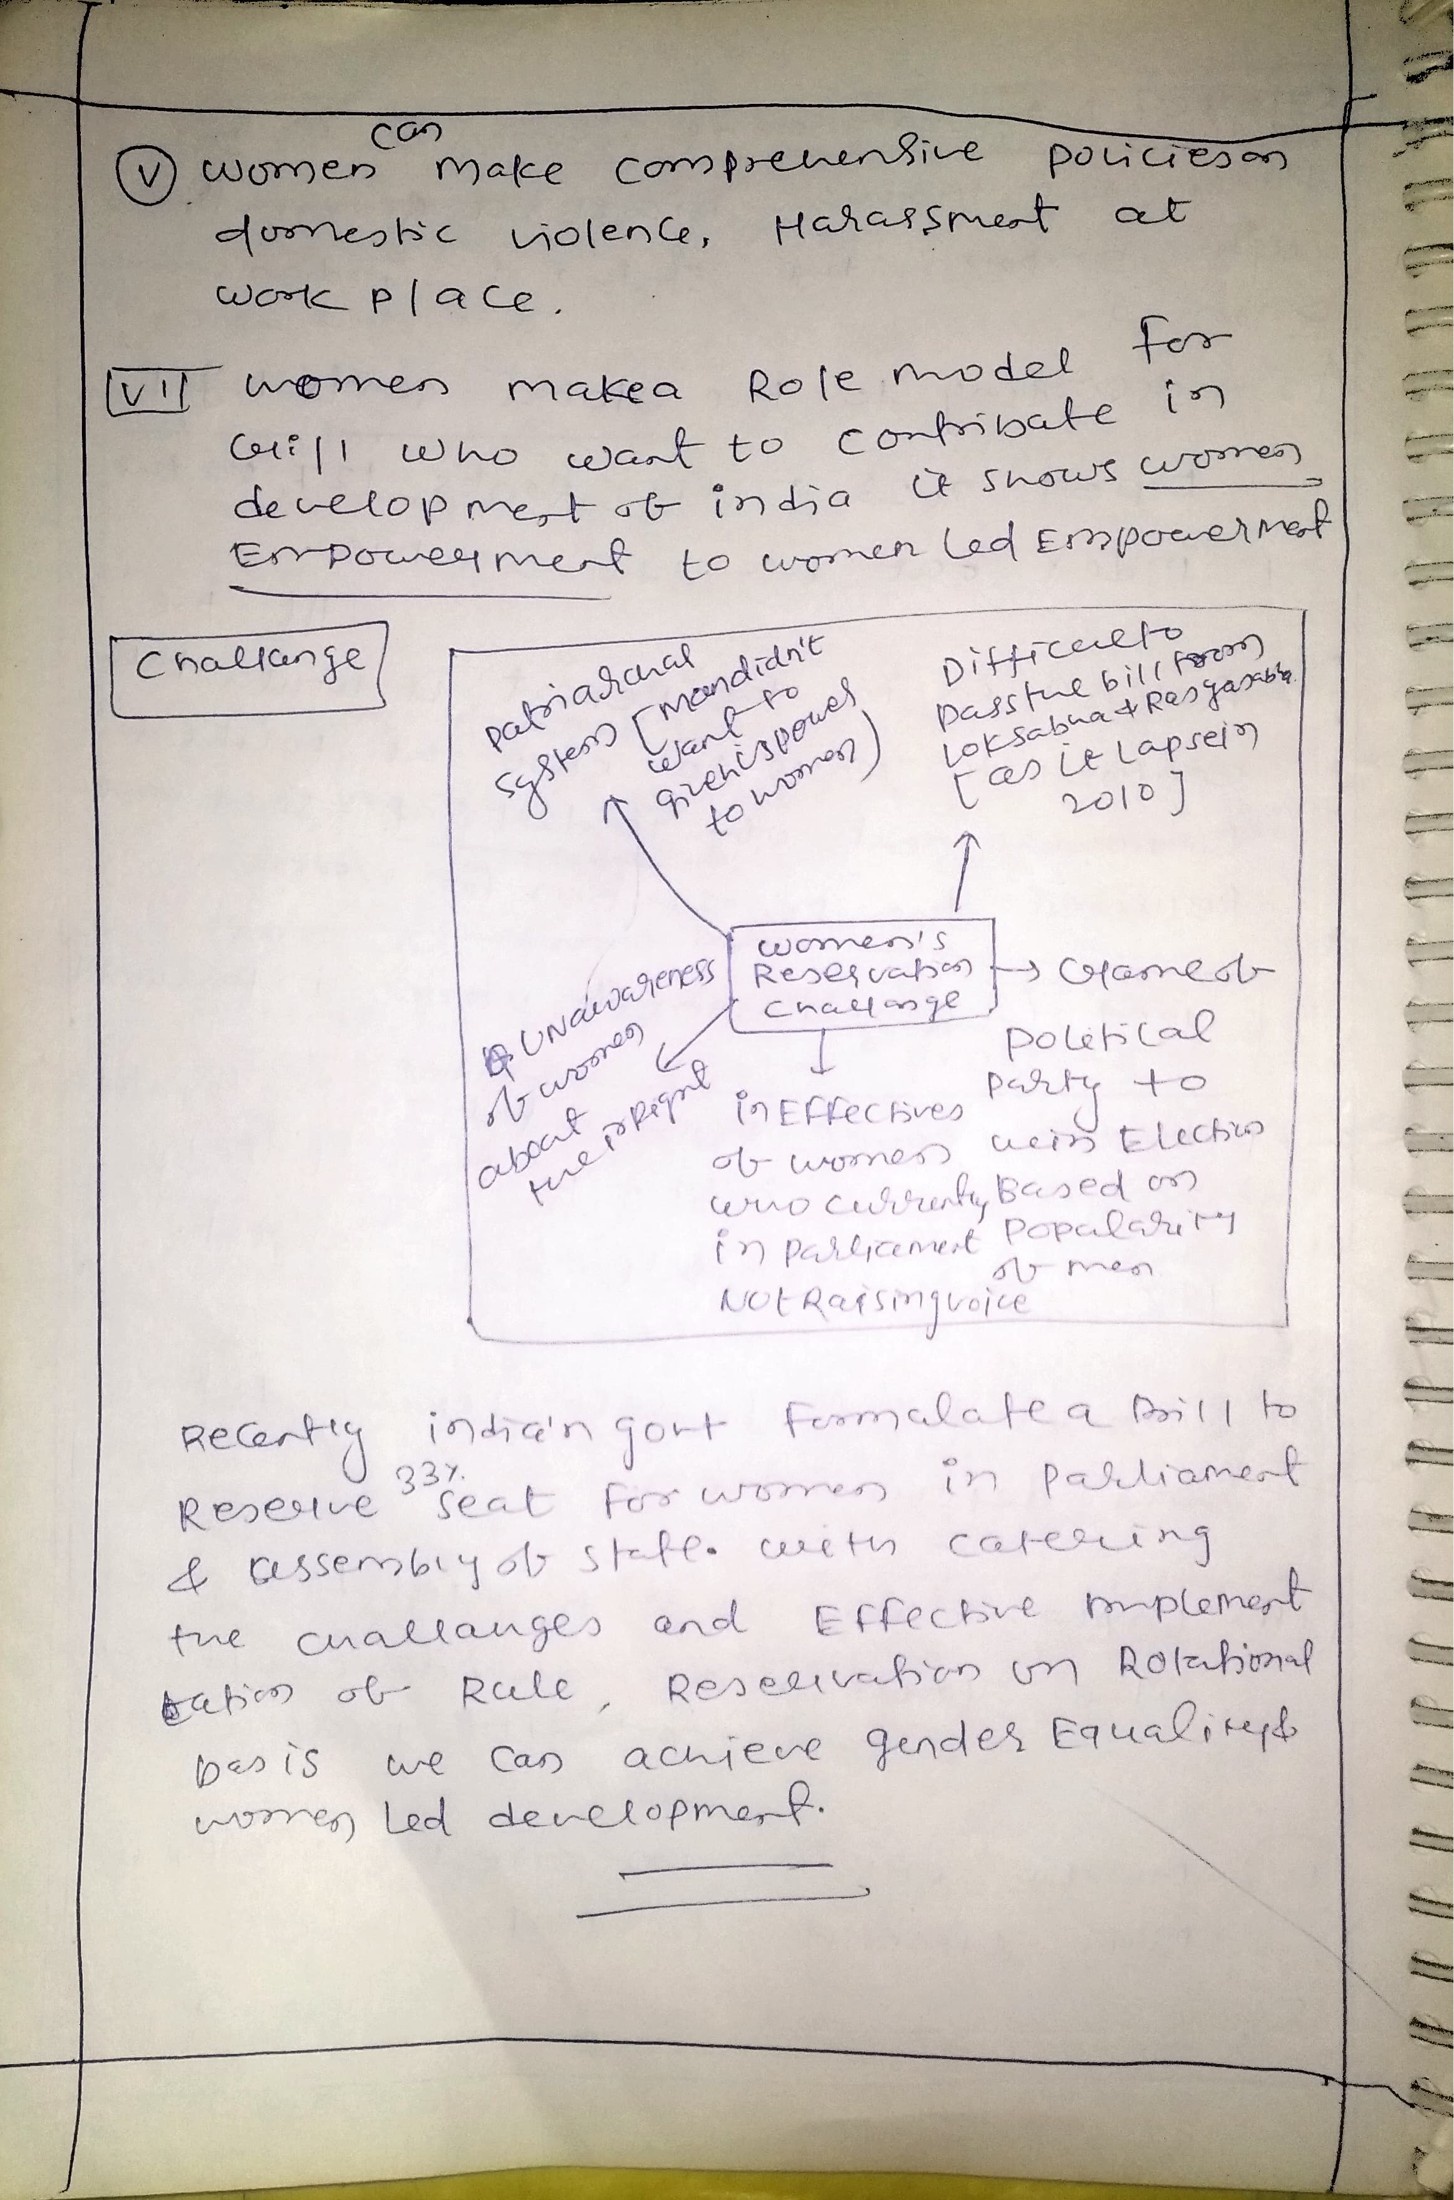 can
(V) women make comprehensive policies on
domestic violence, Harassment at
work place.
VI women make a Role model for
Girl who want to contribute in
development of india it shows women
Empowerment to women Led Empowerment
Challange
Patriarchal
System [Man didn't
want to
give his power
to women)
Difficult to
pass the bill from
Loksabha & Rasyasabha
[as it Lapse in
2010]
women's
Reservation
Challange
→ Game of
Political
Party to
win Election
Based on
Popularity
of men
Unawareness
of women
about
their Right
inEffectives
of women
who currently
in Parliament
Not Raising voice
Recently india'n govt formalate a Bill to
Reserve 33% seat for women in parliament
& assembly of state. with catering
the challanges and Effective implement
tation of Rule, Reservation on Rotational
basis we can achieve gender Equality &
women Led development.